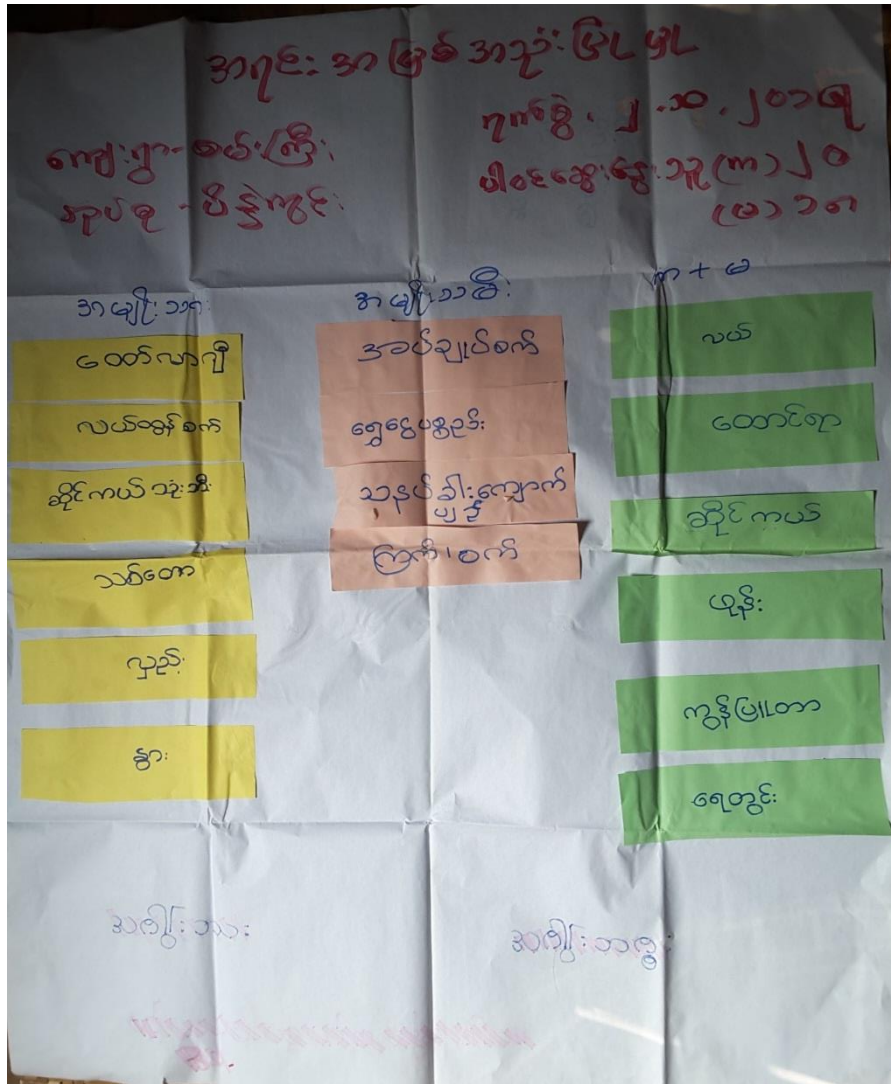 အရင်းအမြစ်အသုံးပြုမှု
ကျေးရွာ - စမ်းကြီး
အုပ်စု - ပိန္နဲကွင်း
ရက်စွဲ . ၂ .၁၀ . ၂၀၁၉
ပါဝင်ဆွေးနွေးသူ (ကျား) ၂၀
(မ) ၁၈
အမျိုးသား
ထော်လာဂျီ
လယ်ထွန်စက်
ဆိုင်ကယ်သုံးဘီး
သစ်တော
လှည်း
နွား
အမျိုးသမီး
အပ်ချုပ်စက်
ရွှေငွေပစ္စည်း
သနပ်ခါးကျောက်ပျဉ်
ကြိတ်စက်
ကျား + မ
လယ်
တောင်ရာ
ဆိုင်ကယ်
ဖုန်း
ကွန်ပြူတာ
ရေတွင်း